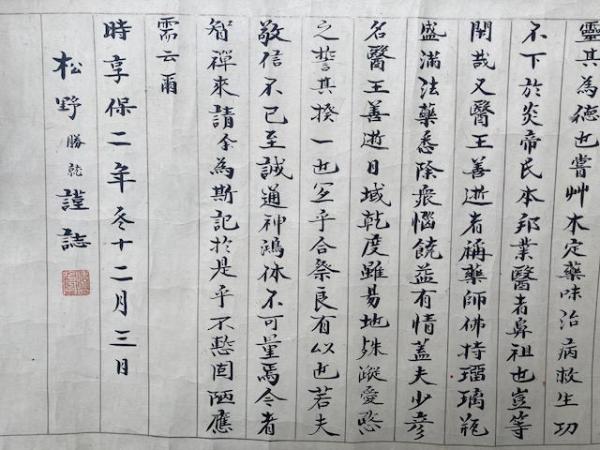 靈其為德也嘗艸木定藥味治病救生功
不下於炎帝民本邦業醫者鼻祖也豈等
閑哉又醫王善逝者稱藥師佛持瑠璃瓶
盛滿法藥悉除衆惱饒益有情蓋夫少彦
名醫王善逝日域乾度雖易地殊蹤愛愍
之誓其揆一也冝乎合祭良有以也若夫
敬信不已至誠通神鴻休不可量焉今者
智禪來請余為斯記於是乎不固陋應
需云爾
時享保二年冬十二月三日
松野勝乾謹誌